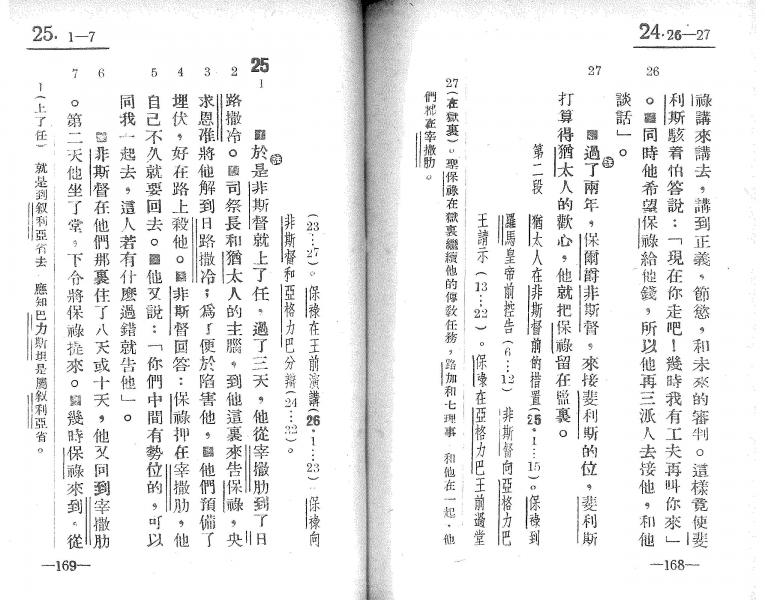 24·26—27
26
祿講來講去，講到正義，節慾，和未來的審判。這樣竟使斐
利斯駭着怕答説：「現在你走吧！幾時我有工夫再叫你來」
。同時他希望保祿給他錢，所以他再三派人去接他，和他
談話」。
27
過了兩年，保爾爵非斯督，來接斐利斯的位，斐利斯
打算得猶太人的歡心，他就把保祿留在監裏。
第二段 猶太人在非斯督前的措置（25·1…15）。保祿到
羅馬皇帝前控告（6…12）非斯督向亞格力巴
王請示（13…22）。保祿在亞格力巴王前過堂
27（在獄裏）。聖保祿在獄裏繼續他的傳敎任務，路加和七理事 和他在一起，他
們就在宰撒肋。
—168—
25. 1—7
（23…27）。保祿在王前演講（26·1…23）保祿向
非斯督和亞格力巴分辯（24…32）。
25
1
於是非斯督就上了任，過了三天，他從宰撒肋到了日
2
路撒冷。司祭長和猶太人的主腦，到他這裏來告保祿，央
3
求恩准將他解到日路撒冷；爲了便於陷害他，他們預備了
4
埋伏，好在路上殺他。非斯督回答：保祿押在宰撒肋，他
5
自己不久就要回去。他又説：「你們中間有勢位的，可以
同我一起去，這人若有什麼過錯就告他」。
6
非斯督在他們那裏住了八天或十天，他又回到宰撒肋
7
。第二天他坐了堂，下令將保祿提來。幾時保祿來到，從
1（上了任） 就是到叙利亞省去 應知巴力斯坦是屬叙利亞省。
—169—